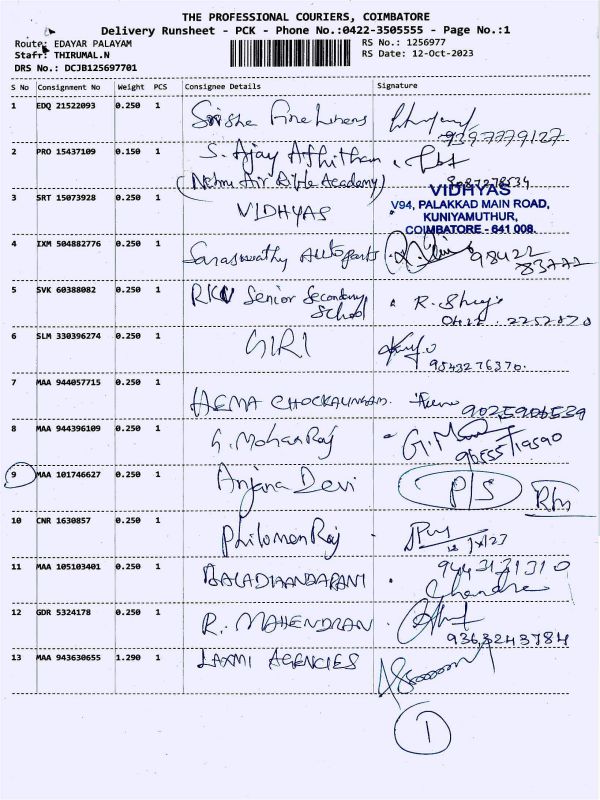 THE PROFESSIONAL COURIERS, COIMBATORE
Delivery Runsheet - PCK - Phone No.:0422-3505555 - Page No.:1
Route: EDAYAR PALAYAM
RS No.: 1256977
Staff: THIRUMAL.N
RS Date: 12-Oct-2023
DRS No.: DCJB125697701
S No Consignment No Weight PCS Consignee Details Signature
1 EDQ 21522093 0.250 1 Fine Linens
2 PRO 15437109 0.150 1 S. Ajay
(Nehru Air Rifle Academy)
3 SRT 15073928 0.250 1 VIDHYAS
VIDHYAS
V94, PALAKKAD MAIN ROAD,
KUNIYAMUTHUR,
COIMBATORE - 641 008.
4 IXM 504882776 0.250 1 Saraswathy Autoparts 98422
83772
5 SVK 60388082 0.250 1 Senior Secondary
School
R.
0422
6 SLM 330396274 0.250 1 GIRI
9543276370.
7 MAA 944057715 0.250 1 HEMA CHOCKALINGAM.
8 MAA 944396109 0.250 1 G. Mohan Raj
9 MAA 101746627 0.250 1 Anjana Devi P/S
10 CNR 1630857 0.250 1 Philomen Raj
11 MAA 105103401 0.250 1 9443131310
Chandra
12 GDR 5324178 0.250 1 R. MAHENDRAN
9363243784
13 MAA 943630655 1.290 1 LAXMI AGENCIES
1